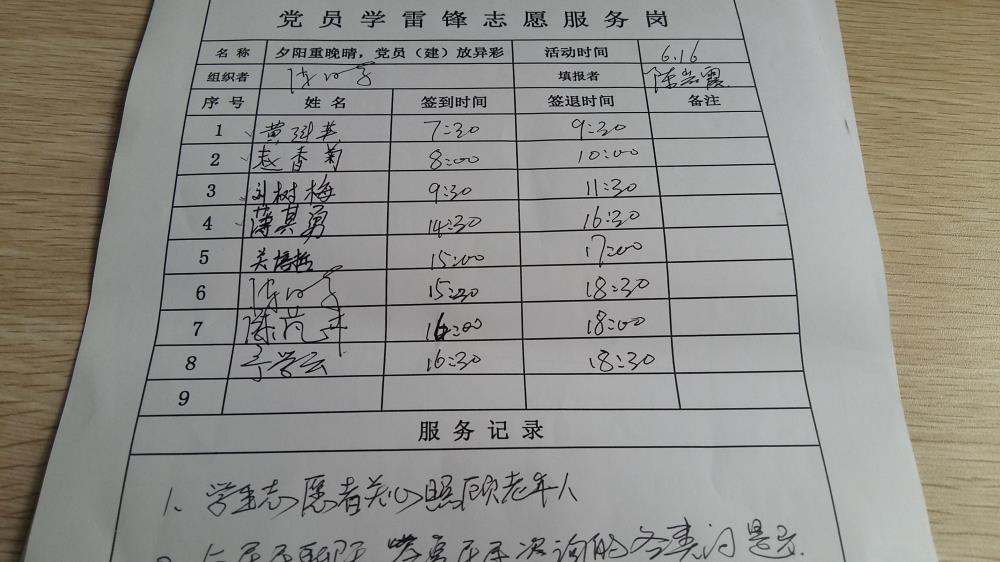 党员学雷锋志愿服务岗
名称 夕阳重晚晴,党员(建)放异彩 活动时间 6.16
组织者 填报者 陈岩霞
序号 姓名 签到时间 签退时间 备注
1 黄 英 7:30 9:30
2 赵香菊 8:00 10:00
3 刘树梅 9:30 11:30
4 薄其勇 14:30 16:30
5 15:00 17:00
6 15:30 18:30
7 16:00 18:00
8 于学云 16:30 18:30
9
服务记录
1、学生志愿者关心照顾老年人
各类问题